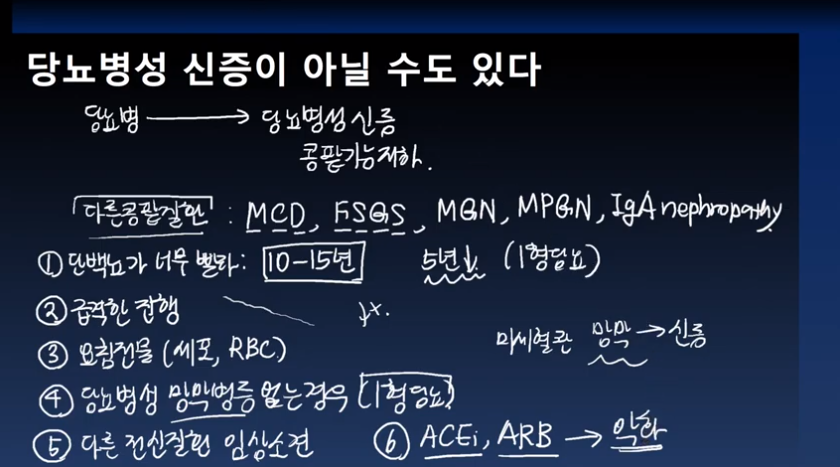 당뇨병성 신증이 아닐 수도 있다
당뇨병 → 당뇨병성신증
콩팥기능저하.
다른콩팥질환 : MCD, FSGS, MGN, MPGN, IgA nephropathy
① 단백뇨가 너무 빨라: 10-15년 5년↓ (1형당뇨)
② 급격한 진행
③ 요침전물 (세포, RBC)
미세혈관 망막 → 신증
④ 당뇨병성 망막병증 없는경우 (1형당뇨)
⑤ 다른 전신질환 임상소견 ⑥ ACEi, ARB → 악화